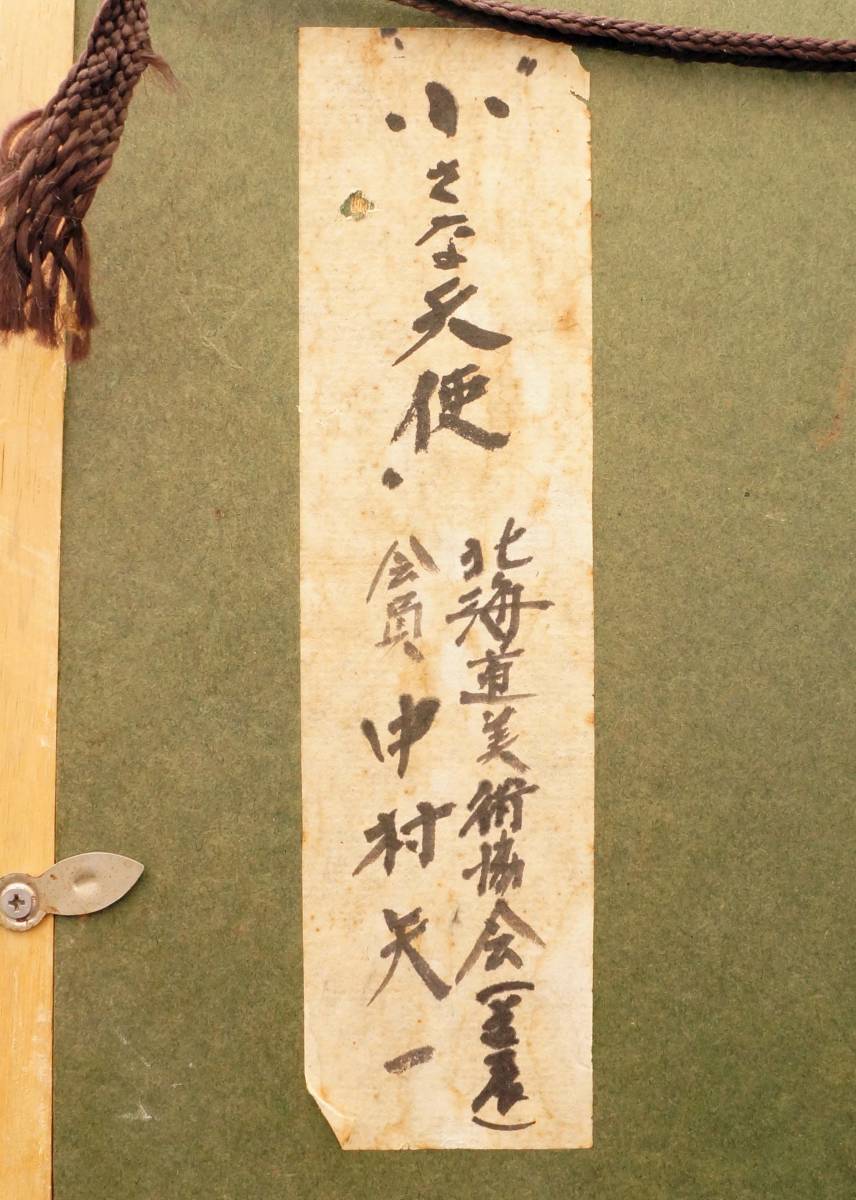 "小さな天使"
北海道美術協会(道展)
会員 中村矢一